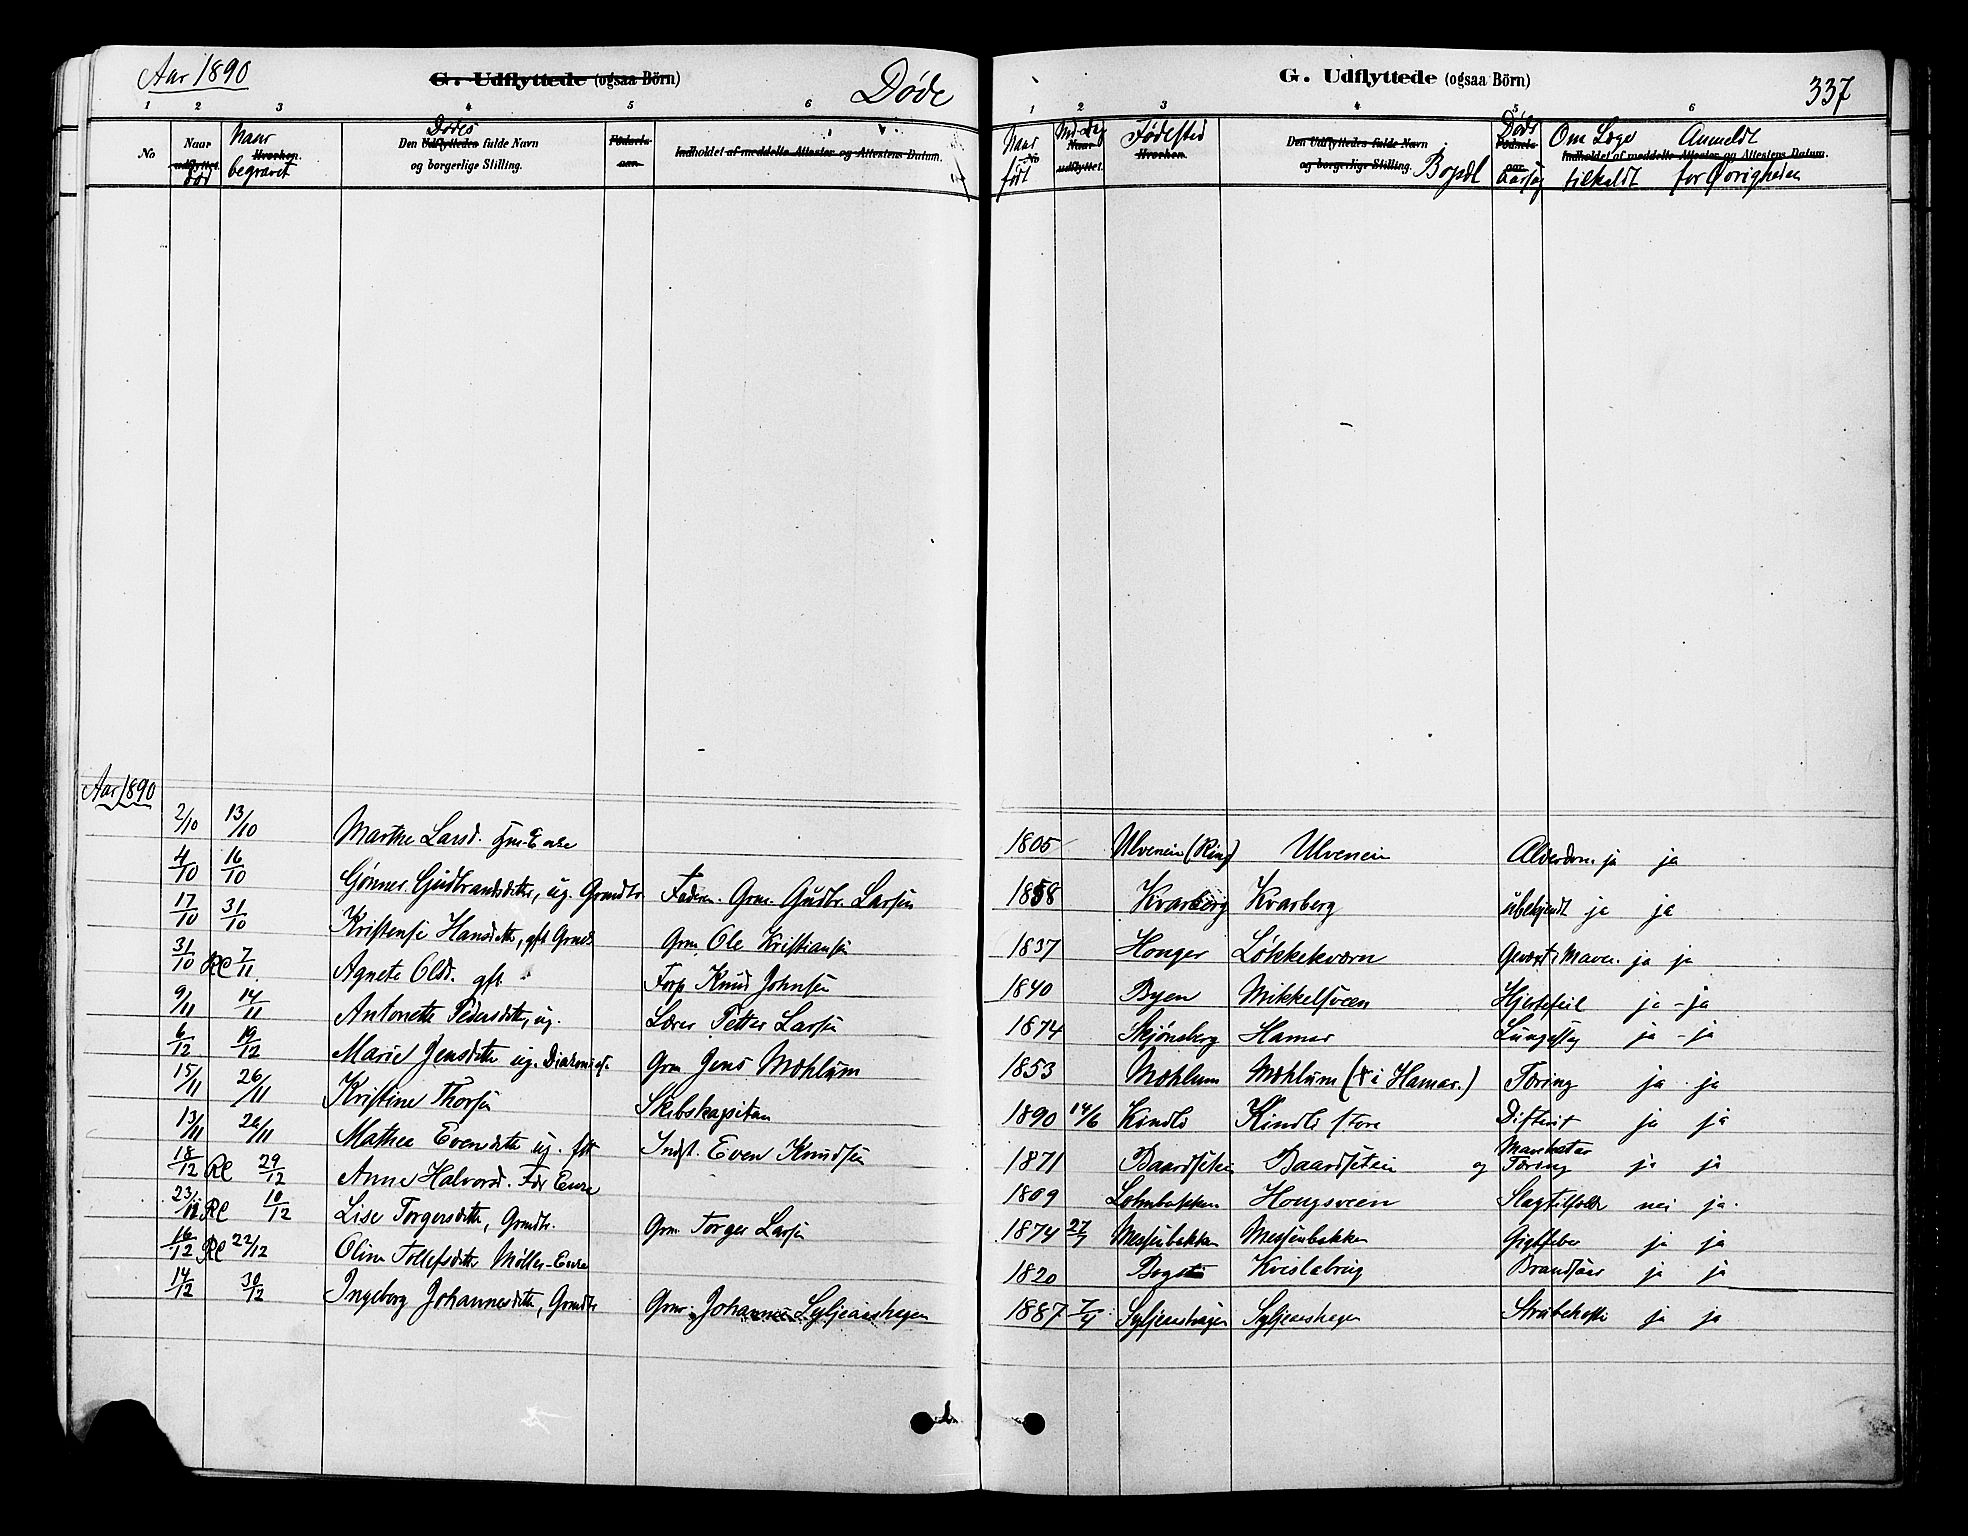 Aar 1890 G. Udflyttede (ogsaa Börn) Døde
1 2 3 4 5 6
No Naar udflyttet død Naar Hvorhen. begravet Den Udflyttedes Dødes fulde Navn og borgerlige Stilling. Födsels-aar. Indholdet af meddelte Attester og Attestens Datum.
G. Udflyttede (ogsaa Börn) 337
1 2 3 4 5 6
Naar No født Md. Dag Naar udflyttet. Fødested Hvorhen. Den Udflyttedes fulde Navn og borgerlige Stilling. Bopæl Døds Födsels-aar. aarsag Om Læge tilkaldt Anmeldt for Øvrigheden Indholdet af meddelte Attester og Attestens Datum.
Aar 1890
2/10 13/10 Marthe Larsd. 1805 Ulveneie (Rings) Ulveneie Alderdom ja ja
4/10 16/10 Gudbrandsdtr, ug. Grmdtr Faderen. Grm. Gudbr. Larsen 1858 Kvarberg Kvarberg ubekjendt ja ja
17/10 31/10 Hansdtr, gft Grm Ole Kristiansen 1837 Honger Løkkekværn ja ja
31/10 RC 7/11 Agnete Olsd. gft. Forp Knud Johnsen 1840 Byen Mikkelsveen Hjertefeil ja - ja
9/11 14/11 Antonette Pedersdtr, ug. Lærer Petter Larsen 1874 Skjønsberg Hamar ja - ja
6/12 19/12 Marie Jensdtr ug. Grm Jens Mæhlum 1853 Mæhlum Mæhlum (+ i Hamar.) Tæring ja ja
15/11 26/11 Kristine Thorsen Skibskapitan 1890 14/6 Kindli Kindli store Difterit ja ja
13/11 20/11 Mathea Evensdtr ug. Indst. Even Knudsen 1871 Baardseteie Baardseteie og Tæring ja ja
18/12 RC 29/12 Anne Halvorsd. 1809 Hongsveen Slagtilfælde nei ja.
23/12 RC 10/12 Lise Torgersdtr, Grmdtr. Grm Torger Larsen 1874 27/7 Messenbakken Messenbakken Gigtfeber ja ja
16/12 RC 22/12 Oline Tollefsdtr Møller-Enke 1820 ja ja
14/12 30/12 Ingeborg Johannesdtr, Grmdtr Grm. Johannes 1887 7/4 Strubehoste ja ja